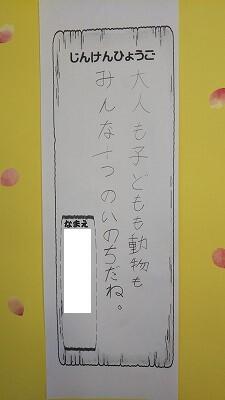 じんけんひょうご
大人も子どもも動物も
みんな十つのいのちだね。
なまえ